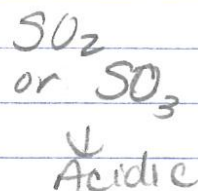 SO₂
or SO₃
↓
Acidic